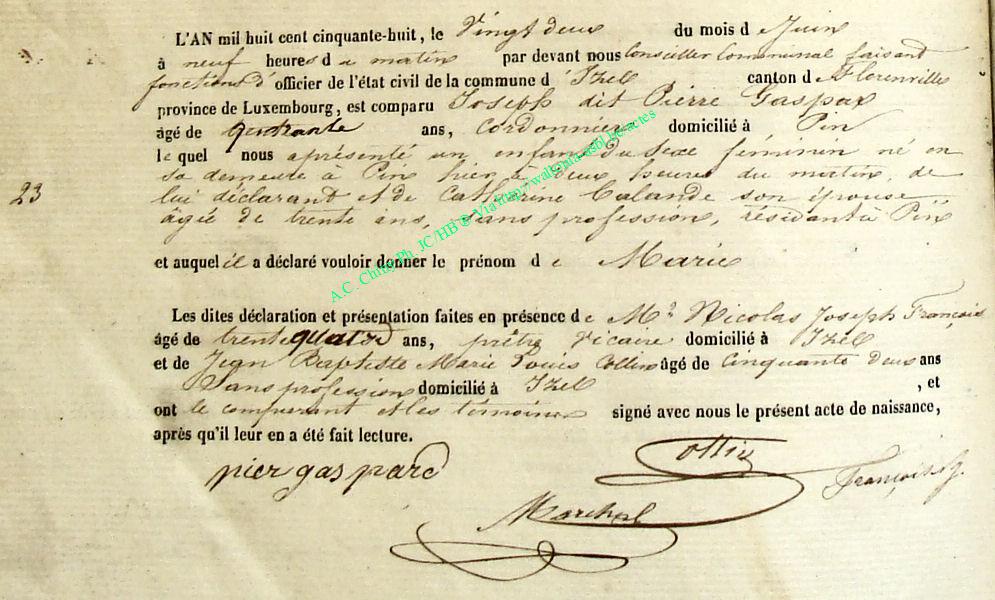 L'AN mil huit cent cinquante-huit, le Vingt deux du mois d e Juin
à neuf heures d u matin par devant nous Conseiller Communal faisant
fonctions d'officier de l'état civil de la commune d' Izel canton d e Florenville
province de Luxembourg, est comparu Joseph dit Pierre Gaspar
âgé de quarante ans, Cordonnier domicilié à Pin
le quel nous a présenté un enfant du sexe feminin né en
sa demeure à Pin hier à deux heures du matin, de
23
lui déclarant et de Catherine Calande son épouse
âgée de trente ans, sans profession, résidant à Pin
et auquel il a déclaré vouloir donner le prénom d e Marie
Les dites déclaration et présentation faites en présence d e Mr Nicolas Joseph François
âgé de trente quatre ans, prêtre Vicaire domicilié à Izel
et de Jean Baptiste Marie Louis Collin âgé de Cinquante deux ans
Sans profession domicilié à Izel , et
ont le comparant et les témoins signé avec nous le présent acte de naissance,
après qu'il leur en a été fait lecture.
pier gaspard
Collin
François
Marchal
A.C. Chiny Ph. JC/HB ® Via http//wallonia-asbl.be/actes